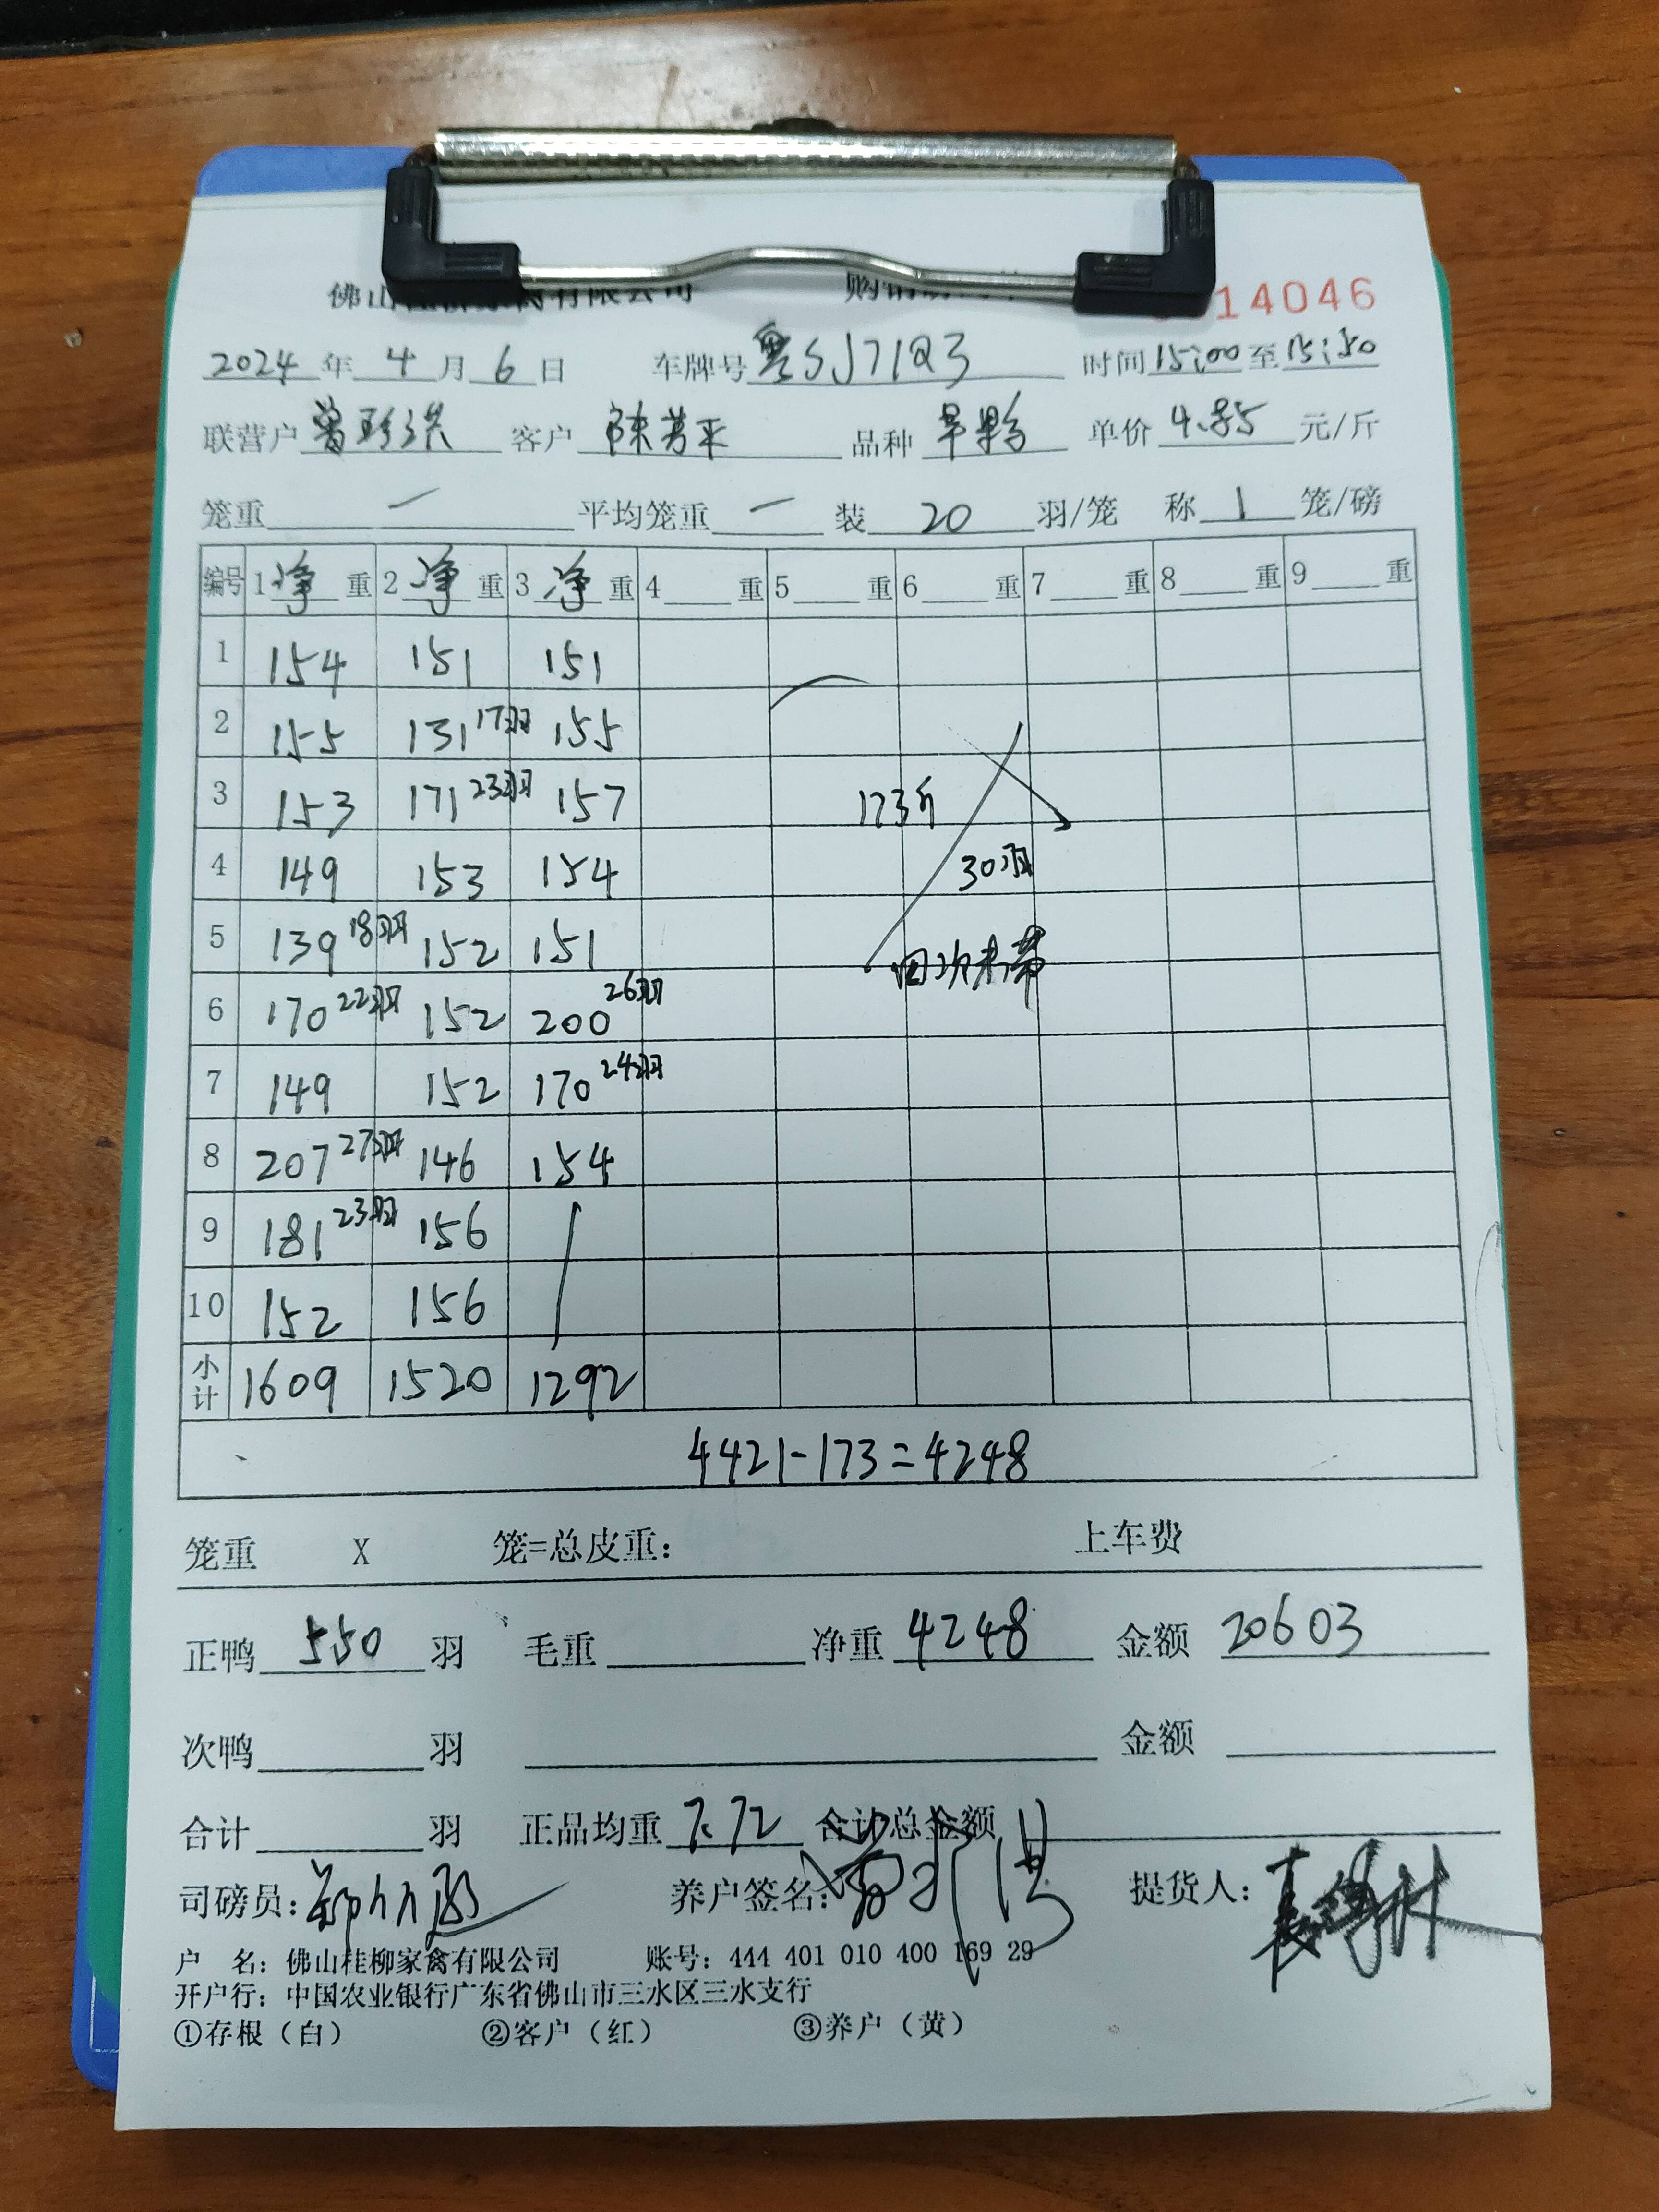 佛山 有限公司 14046
2024年4月6日 车牌号粤SJ71Q3 时间15:00至15:50
联营户 客户陈芳平 品种 单价4.85元/斤
笼重 一 平均笼重 一 装 20 羽/笼 称 1 笼/磅
编号 1净重 2净重 3净重 4 重 5 重 6 重 7 重 8 重 9 重
1 154 151 151
2 155 131 17羽 155
3 153 171 23羽 157 173斤
4 149 153 154 30羽
5 139 18羽 152 151
6 170 22羽 152 200 26羽
7 149 152 170 24羽
8 207 27羽 146 154
9 181 23羽 156
10 152 156
小计 1609 1520 1292
4421-173=4248
笼重 X 笼=总皮重: 上车费
正鸭 550 羽 毛重 净重 4248 金额 20603
次鸭 羽 金额
合计 羽 正品均重 7.72 合计总金额
司磅员: 养户签名: 提货人:
户 名: 佛山桂柳家禽有限公司 账号: 444 401 010 400 169 29
开户行: 中国农业银行广东省佛山市三水区三水支行
①存根（白） ②客户（红） ③养户（黄）